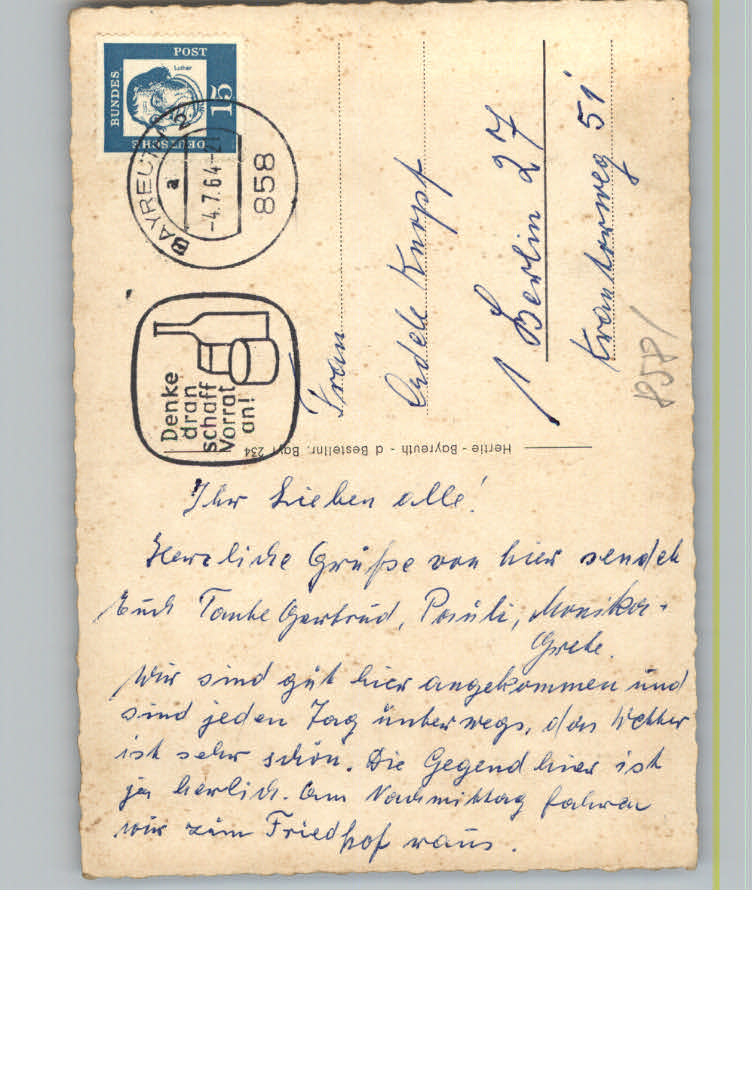 DEUTSCHE
BUNDES
POST
Luther
15
BAYREUTH 2
a
-4.7.64-21
858
Denke
dran
schaff
Vorrat
an!
Frau
1 Berlin 27
51
8578/
Hertie - Bayreuth - d Bestellnr. Bayr 234
Ihr Lieben alle!
Herzliche Grüße von hier sendet
Euch Tante Gertrud, Pauli, Monika +
Grete.
Wir sind gut hier angekommen und
sind jeden Tag unterwegs, das Wetter
ist sehr schön. Die Gegend hier ist
ja herlich. Am Nachmittag fahren
wir zum Friedhof raus.